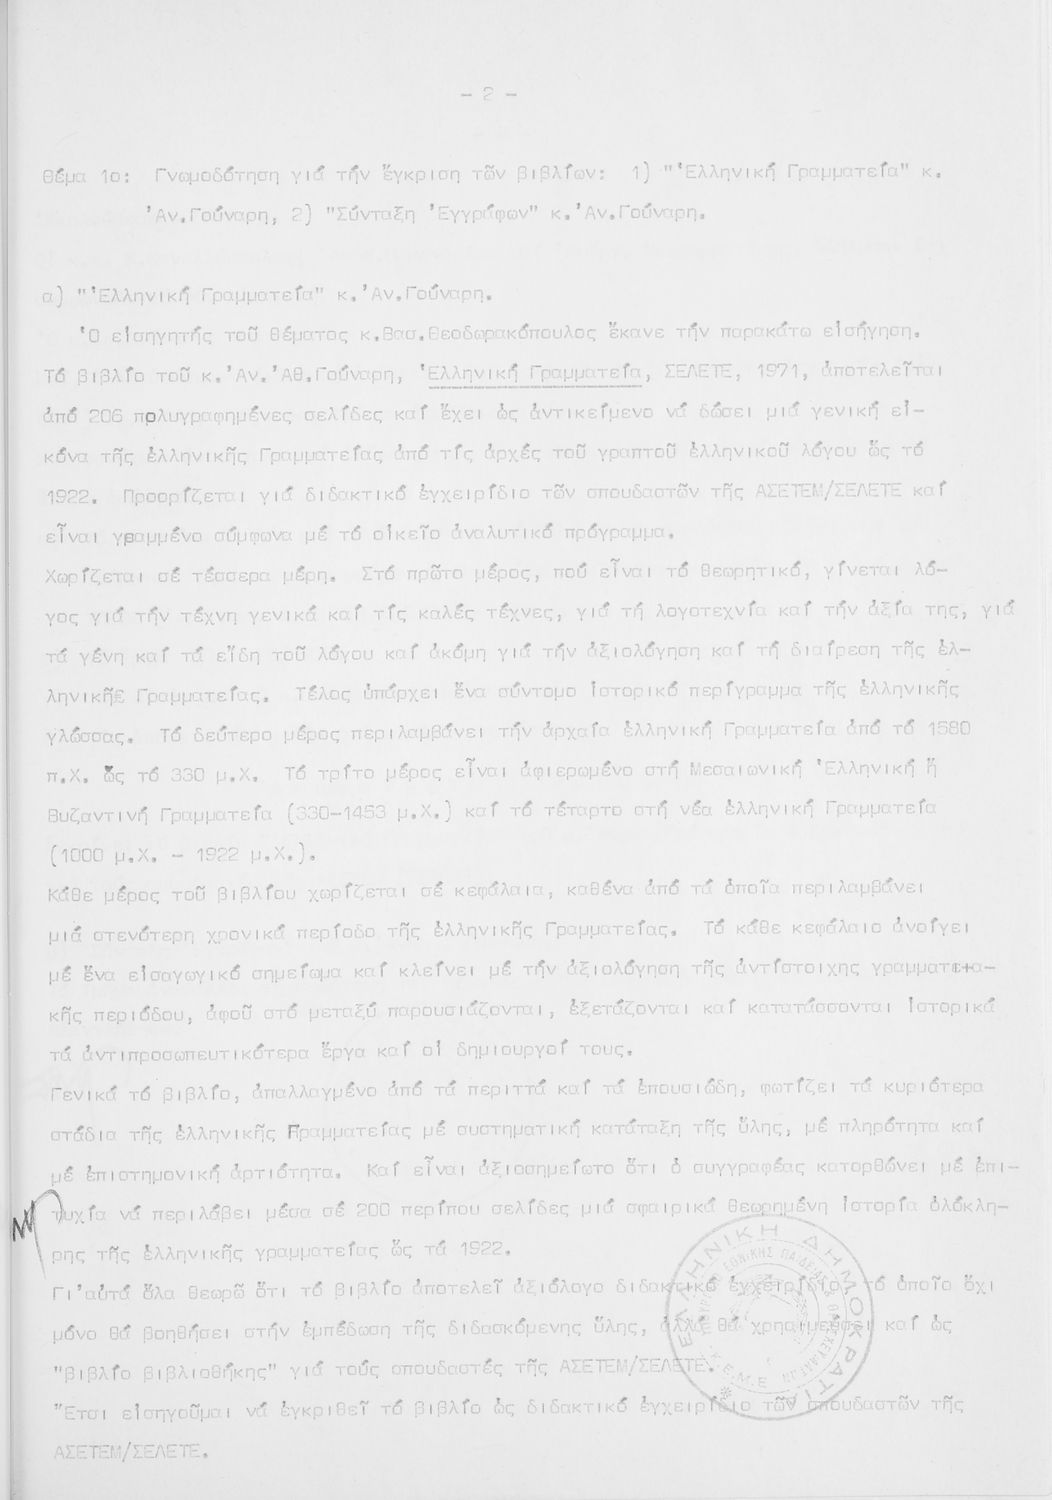 - 2 -
Θέμα 1ο: Γνωμοδότηση γιά τήν ἔγκριση τῶν βιβλίων: 1) "Ἑλληνική Γραμματεία" κ.
Ἀν.Γούναρη, 2) "Σύνταξη Ἐγγράφων" κ.Ἀν.Γούναρη.
α) "Ἑλληνική Γραμματεία" κ.Ἀν.Γούναρη.
Ὁ εἰσηγητής τοῦ θέματος κ.Βασ.Θεοδωρακόπουλος ἔκανε τήν παρακάτω εἰσήγηση.
Τό βιβλίο τοῦ κ.Ἀν.Ἀθ.Γούναρη, Ἑλληνική Γραμματεία, ΣΕΛΕΤΕ, 1971, ἀποτελεῖται
ἀπό 206 πολυγραφημένες σελίδες καί ἔχει ὡς ἀντικείμενο νά δώσει μιά γενική εἰ-
κόνα τῆς ἑλληνικῆς Γραμματείας ἀπό τίς ἀρχές τοῦ γραπτοῦ ἑλληνικοῦ λόγου ὥς τό
1922. Προορίζεται γιά διδακτικό ἐγχειρίδιο τῶν σπουδαστῶν τῆς ΑΣΕΤΕΜ/ΣΕΛΕΤΕ καί
εἶναι γραμμένο σύμφωνα μέ τό οἰκεῖο ἀναλυτικό πρόγραμμα.
Χωρίζεται σέ τέσσερα μέρη. Στό πρῶτο μέρος, πού εἶναι τό θεωρητικό, γίνεται λό-
γος γιά τήν τέχνη γενικά καί τίς καλές τέχνες, γιά τή λογοτεχνία καί τήν ἀξία της, γιά
τά γένη καί τά εἴδη τοῦ λόγου καί ἀκόμη γιά τήν ἀξιολόγηση καί τή διαίρεση τῆς ἑλ-
ληνικῆς Γραμματείας. Τέλος ὑπάρχει ἕνα σύντομο ἱστορικό περίγραμμα τῆς ἑλληνικῆς
γλώσσας. Τό δεύτερο μέρος περιλαμβάνει τήν ἀρχαία ἑλληνική Γραμματεία ἀπό τό 1580
π.Χ. ὥς τό 330 μ.Χ. Τό τρίτο μέρος εἶναι ἀφιερωμένο στή Μεσαιωνική Ἑλληνική ἤ
Βυζαντινή Γραμματεία (330-1453 μ.Χ.) καί τό τέταρτο στή νέα ἑλληνική Γραμματεία
(1000 μ.Χ. - 1922 μ.Χ.).
Κάθε μέρος τοῦ βιβλίου χωρίζεται σέ κεφάλαια, καθένα ἀπό τά ὁποῖα περιλαμβάνει
μιά στενότερη χρονικά περίοδο τῆς ἑλληνικῆς Γραμματείας. Τό κάθε κεφάλαιο ἀνοίγει
μέ ἕνα εἰσαγωγικό σημείωμα καί κλείνει μέ τήν ἀξιολόγηση τῆς ἀντίστοιχης γραμματεια-
κῆς περιόδου, ἀφοῦ στό μεταξύ παρουσιάζονται, ἐξετάζονται καί κατατάσσονται ἱστορικά
τά ἀντιπροσωπευτικότερα ἔργα καί οἱ δημιουργοί τους.
Γενικά τό βιβλίο, ἀπαλλαγμένο ἀπό τά περιττά καί τά ἐπουσιώδη, φωτίζει τά κυριότερα
στάδια τῆς ἑλληνικῆς Γραμματείας μέ συστηματική κατάταξη τῆς ὕλης, μέ πληρότητα καί
μέ ἐπιστημονική ἀρτιότητα. Καί εἶναι ἀξιοσημείωτο ὅτι ὁ συγγραφέας κατορθώνει μέ ἐπι-
τυχία νά περιλάβει μέσα σέ 200 περίπου σελίδες μιά σφαιρικά θεωρημένη ἱστορία ὁλόκλη-
ρης τῆς ἑλληνικῆς γραμματείας ὥς τά 1922.
Γι'αὐτά ὅλα θεωρῶ ὅτι τό βιβλίο ἀποτελεῖ ἀξιόλογο διδακτικό ἐγχειρίδιο, τό ὁποῖο ὄχι
μόνο θά βοηθήσει στήν ἐμπέδωση τῆς διδασκόμενης ὕλης, ἀλλά θά χρησιμεύσει καί ὡς
"βιβλίο βιβλιοθήκης" γιά τούς σπουδαστές τῆς ΑΣΕΤΕΜ/ΣΕΛΕΤΕ.
Ἔτσι εἰσηγοῦμαι νά ἐγκριθεῖ τό βιβλίο ὡς διδακτικό ἐγχειρίδιο τῶν σπουδαστῶν τῆς
ΑΣΕΤΕΜ/ΣΕΛΕΤΕ.
ΕΛΛΗΝΙΚΗ ΔΗΜΟΚΡΑΤΙΑ
Κ.Ε.Μ.Ε